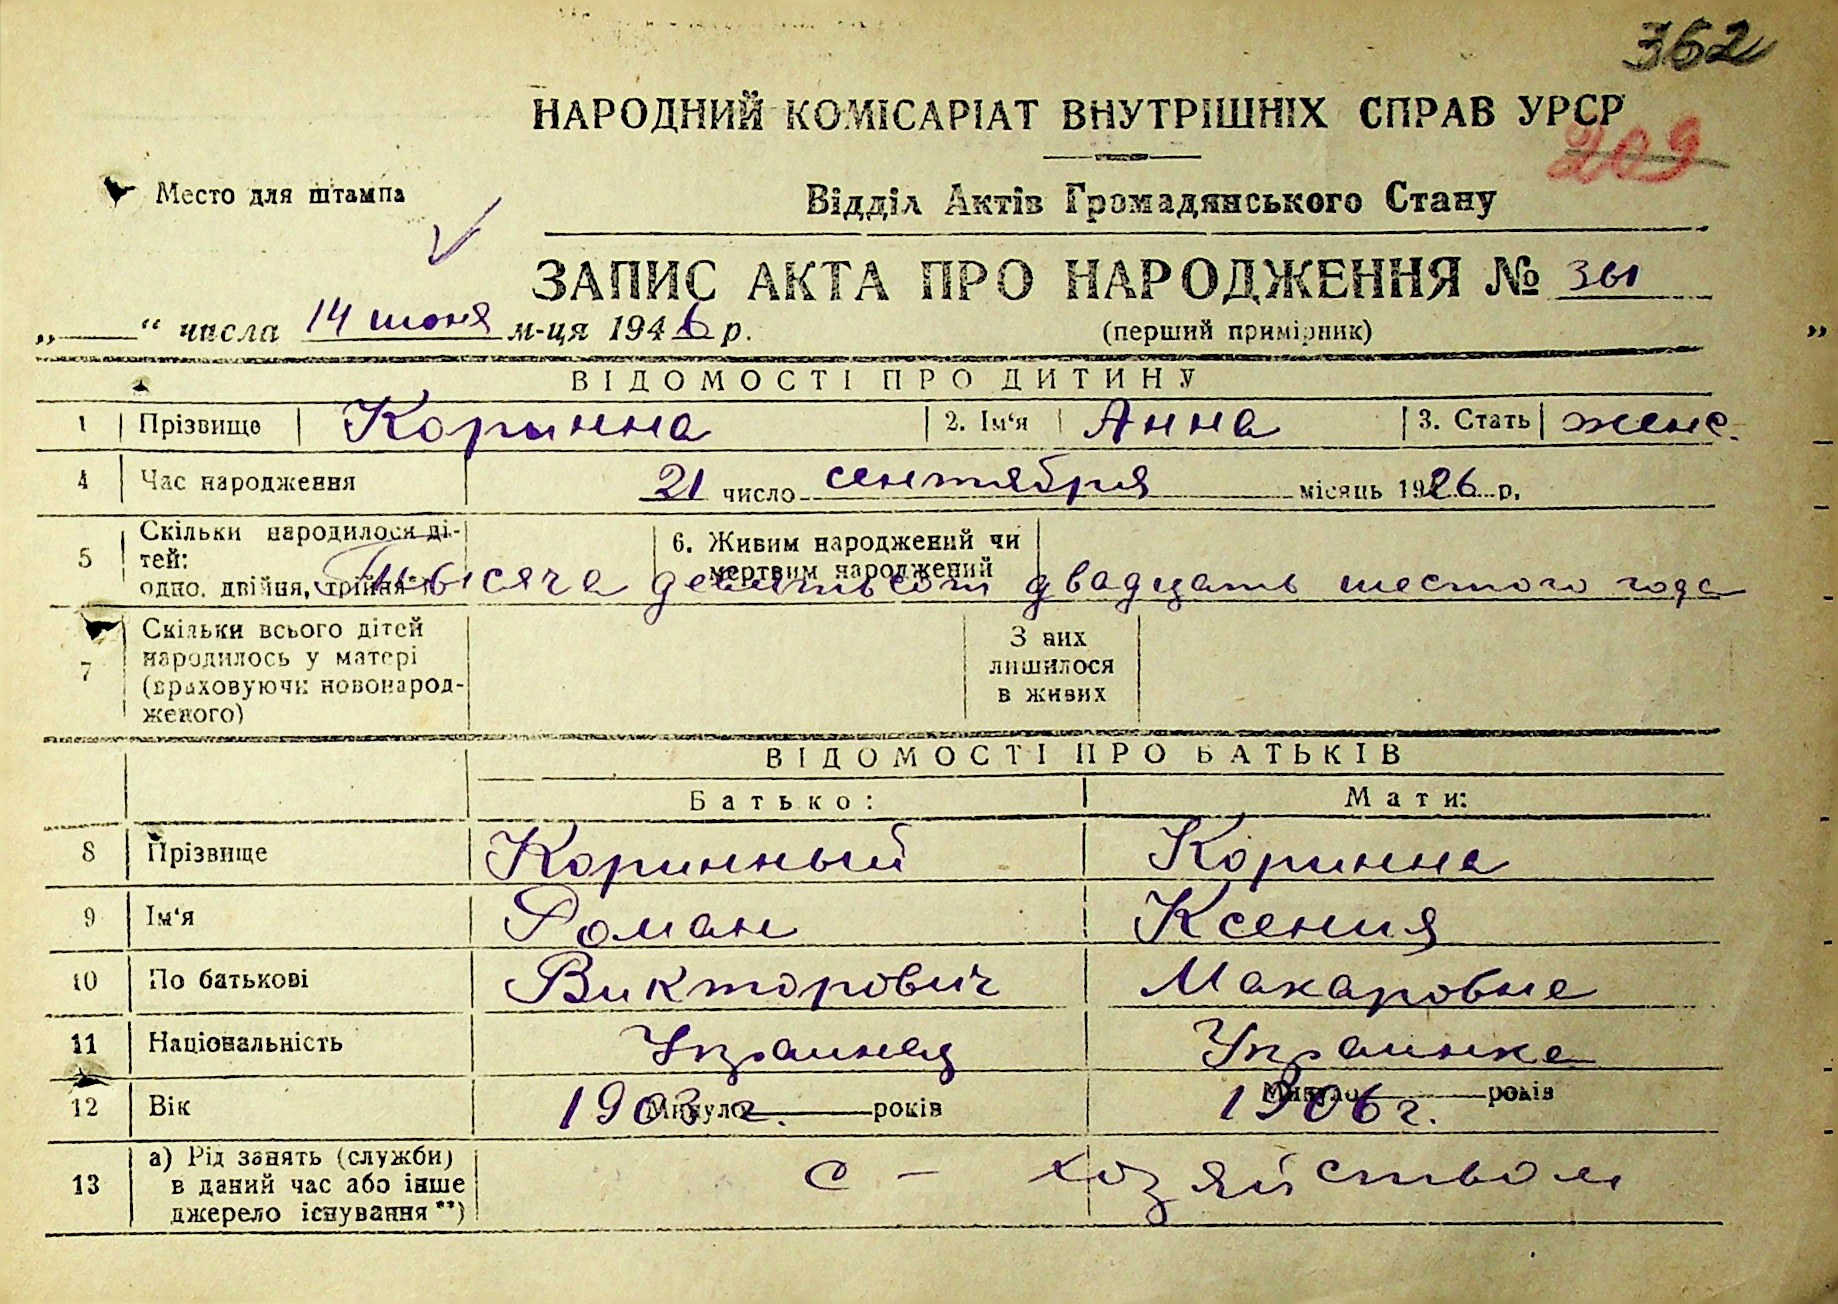 362
НАРОДНИЙ КОМІСАРІАТ ВНУТРІШНІХ СПРАВ УРСР
209
Место для штампа
Відділ Актів Громадянського Стану
ЗАПИС АКТА ПРО НАРОДЖЕННЯ № 361
„ “ числа 14 июня м-ця 1946 р.
(перший примірник)
ВІДОМОСТІ ПРО ДИТИНУ
1 Прізвище Коринна 2. Ім‘я Анна 3. Стать женс.
4 Час народження 21 число сентября місяць 1926 р.
5 Скільки народилося ді-
тей:
одно, двійня, трійня
6. Живим народжений чи
мертвим народжений
Тысяча девятьсот двадцать шестого года
7 Скільки всього дітей
народилось у матері
(враховуючи новонарод-
женого)
З них
лишилося
в живих
ВІДОМОСТІ ПРО БАТЬКІВ
Батько: Мати:
8 Прізвище Коринный Коринна
9 Ім‘я Роман Ксения
10 По батькові Викторович Макаровна
11 Національність Украинец Украинка
12 Вік Минуло років 1903 г. Минуло років 1906 г.
13 а) Рід занять (служби)
в даний час або інше
джерело існування **)
с – хозяйством